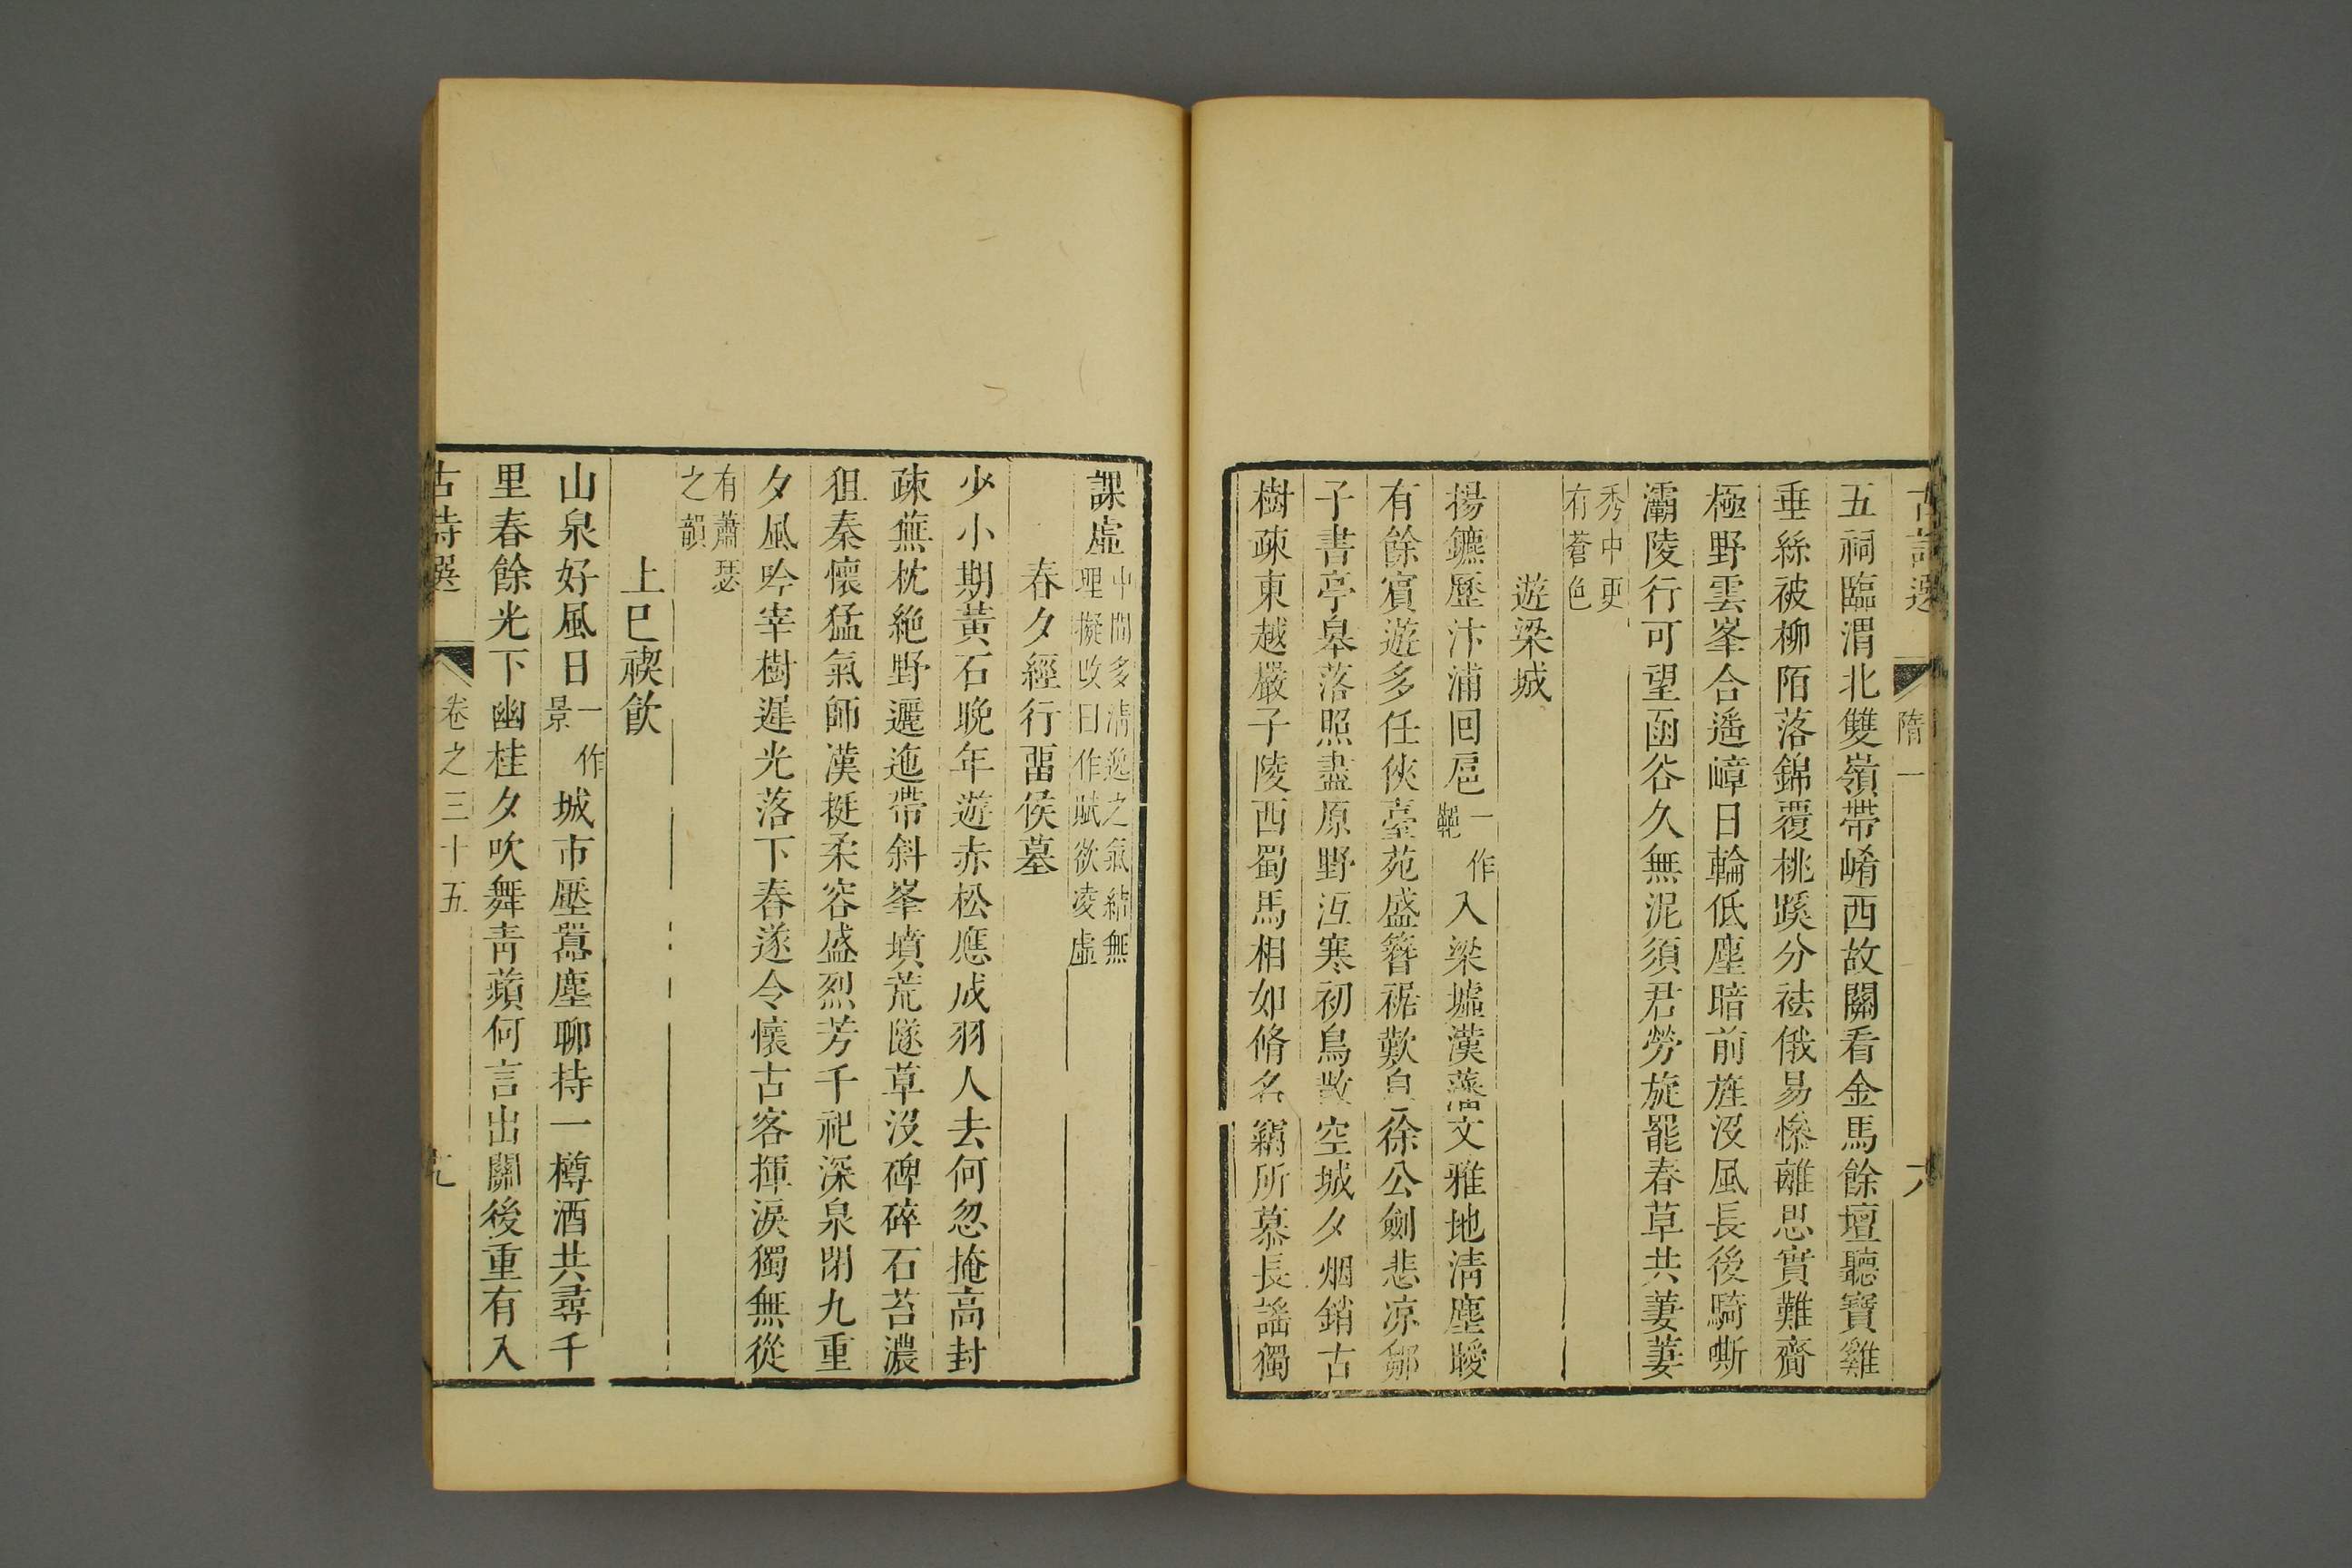 古詩選 隋一 六
五祠臨渭北雙嶺帶崤西故關看金馬餘壇聽寶雞
垂絲被柳陌落錦覆桃蹊分袪俄易慘離思實難齊
極野雲峯合遙嶂日輪低塵暗前旌沒風長後騎嘶
灞陵行可望函谷久無泥須君勞旋罷春草共萋萋
秀中更
有蒼色
遊梁城
揚鑣歷汴浦回扈一作入梁墟漢藩文雅地清塵曖
有餘賓遊多任俠臺苑盛簪裾歎息徐公劍悲凉鄒
子書亭皋落照盡原野沍寒初鳥散空城夕烟銷古
樹疎東越嚴子陵西蜀馬相如脩名竊所慕長謠獨
課虛中間多清逸之氣結無
理擬改曰作賦欲凌虛
春夕經行畱侯墓
少小期黃石晚年遊赤松應成羽人去何忽掩高封
疎蕪枕絶野邐迤帶斜峯墳荒隧草沒碑碎石苔濃
狙秦懷猛氣師漢挺柔容盛烈芳千祀深泉閉九重
夕風吟宰樹遲光落下舂遂令懷古客揮淚獨無從
有蕭瑟
之韻
上巳禊飮
山泉好風日一作景城市壓囂塵聊持一樽酒共尋千
里春餘光下幽桂夕吹舞靑蘋何言出關後重有入
古詩選 卷之三十五